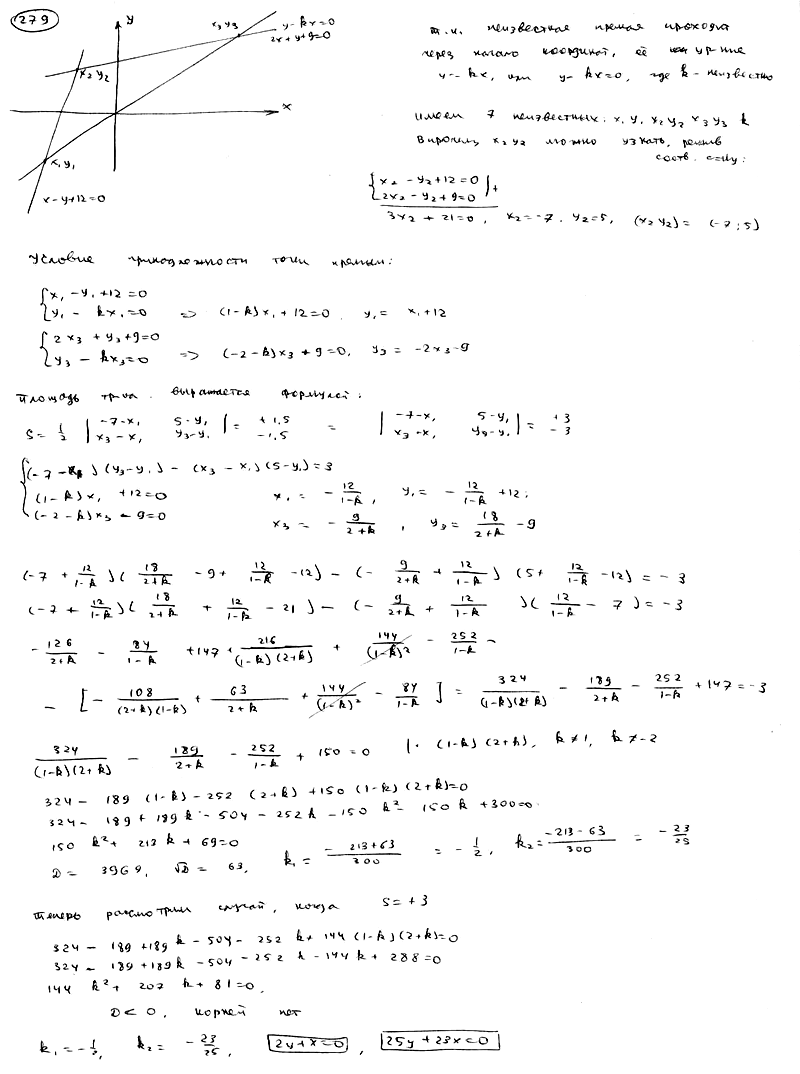 279
y
x₃y₃
y-kx=0
2x+y+9=0
x₂y₂
x
x₁y₁
x-y+12=0
т.к. неизвестная прямая проходит
через начало координат, её ур-ние
y=kx, или y-kx=0, где k - неизвестно
имеем 7 неизвестных: x₁ y₁ x₂ y₂ x₃ y₃ k
Впрочем, x₂ y₂ можно узнать, решив
соотв. с-му:
{x₂ - y₂ + 12 = 0
{2x₂ - y₂ + 9 = 0 | +
3x₂ + 21 = 0, x₂ = -7, y₂ = 5, (x₂ y₂) = (-7; 5)
Условие принадлежности точки прямым:
{x₁ - y₁ + 12 = 0
{y₁ - kx₁ = 0 => (1-k)x₁ + 12 = 0, y₁ = x₁ + 12
{2x₃ + y₃ + 9 = 0
{y₃ - kx₃ = 0 => (-2-k)x₃ - 9 = 0, y₃ = -2x₃ - 9
Площадь тр-ка выражается формулой:
S = 1/2 |-7-x₁ 5-y₁| = +1,5 = |-7-x₁ 5-y₁| = +3
|x₃-x₁ y₃-y₁| -1,5 |x₃-x₁ y₃-y₁| -3
{(-7-x₁)(y₃-y₁) - (x₃-x₁)(5-y₁) = 3
{(1-k)x₁ + 12 = 0 x₁ = -12/(1-k), y₁ = -12/(1-k) + 12;
{(-2-k)x₃ - 9 = 0 x₃ = -9/(2+k), y₃ = 18/(2+k) - 9
(-7 + 12/(1-k))(18/(2+k) - 9 + 12/(1-k) - 12) - (-9/(2+k) + 12/(1-k))(5 + 12/(1-k) - 12) = -3
(-7 + 12/(1-k))(18/(2+k) + 12/(1-k) - 21) - (-9/(2+k) + 12/(1-k))(12/(1-k) - 7) = -3
-126/(2+k) - 84/(1-k) + 147 + 216/((1-k)(2+k)) + 144/(1-k)² - 252/(1-k) -
- [-108/((2+k)(1-k)) + 63/(2+k) + 144/(1-k)² - 84/(1-k)] = 324/((1-k)(2+k)) - 189/(2+k) - 252/(1-k) + 147 = -3
324/((1-k)(2+k)) - 189/(2+k) - 252/(1-k) + 150 = 0 | · (1-k)(2+k), k≠1, k≠-2
324 - 189(1-k) - 252(2+k) + 150(1-k)(2+k) = 0
324 - 189 + 189k - 504 - 252k - 150k² - 150k + 300 = 0
150k² + 213k + 69 = 0
D = 3969, √D = 63, k₁ = (-213+63)/300 = -1/2, k₂ = (-213-63)/300 = -23/25
Теперь рассмотрим случай, когда S = +3
324 - 189 + 189k - 504 - 252k + 144(1-k)(2+k) = 0
324 - 189 + 189k - 504 - 252k - 144k + 288 = 0
144k² + 207k + 81 = 0,
D < 0, корней нет
k₁ = -1/2, k₂ = -23/25, 2y+x=0, 25y+23x=0